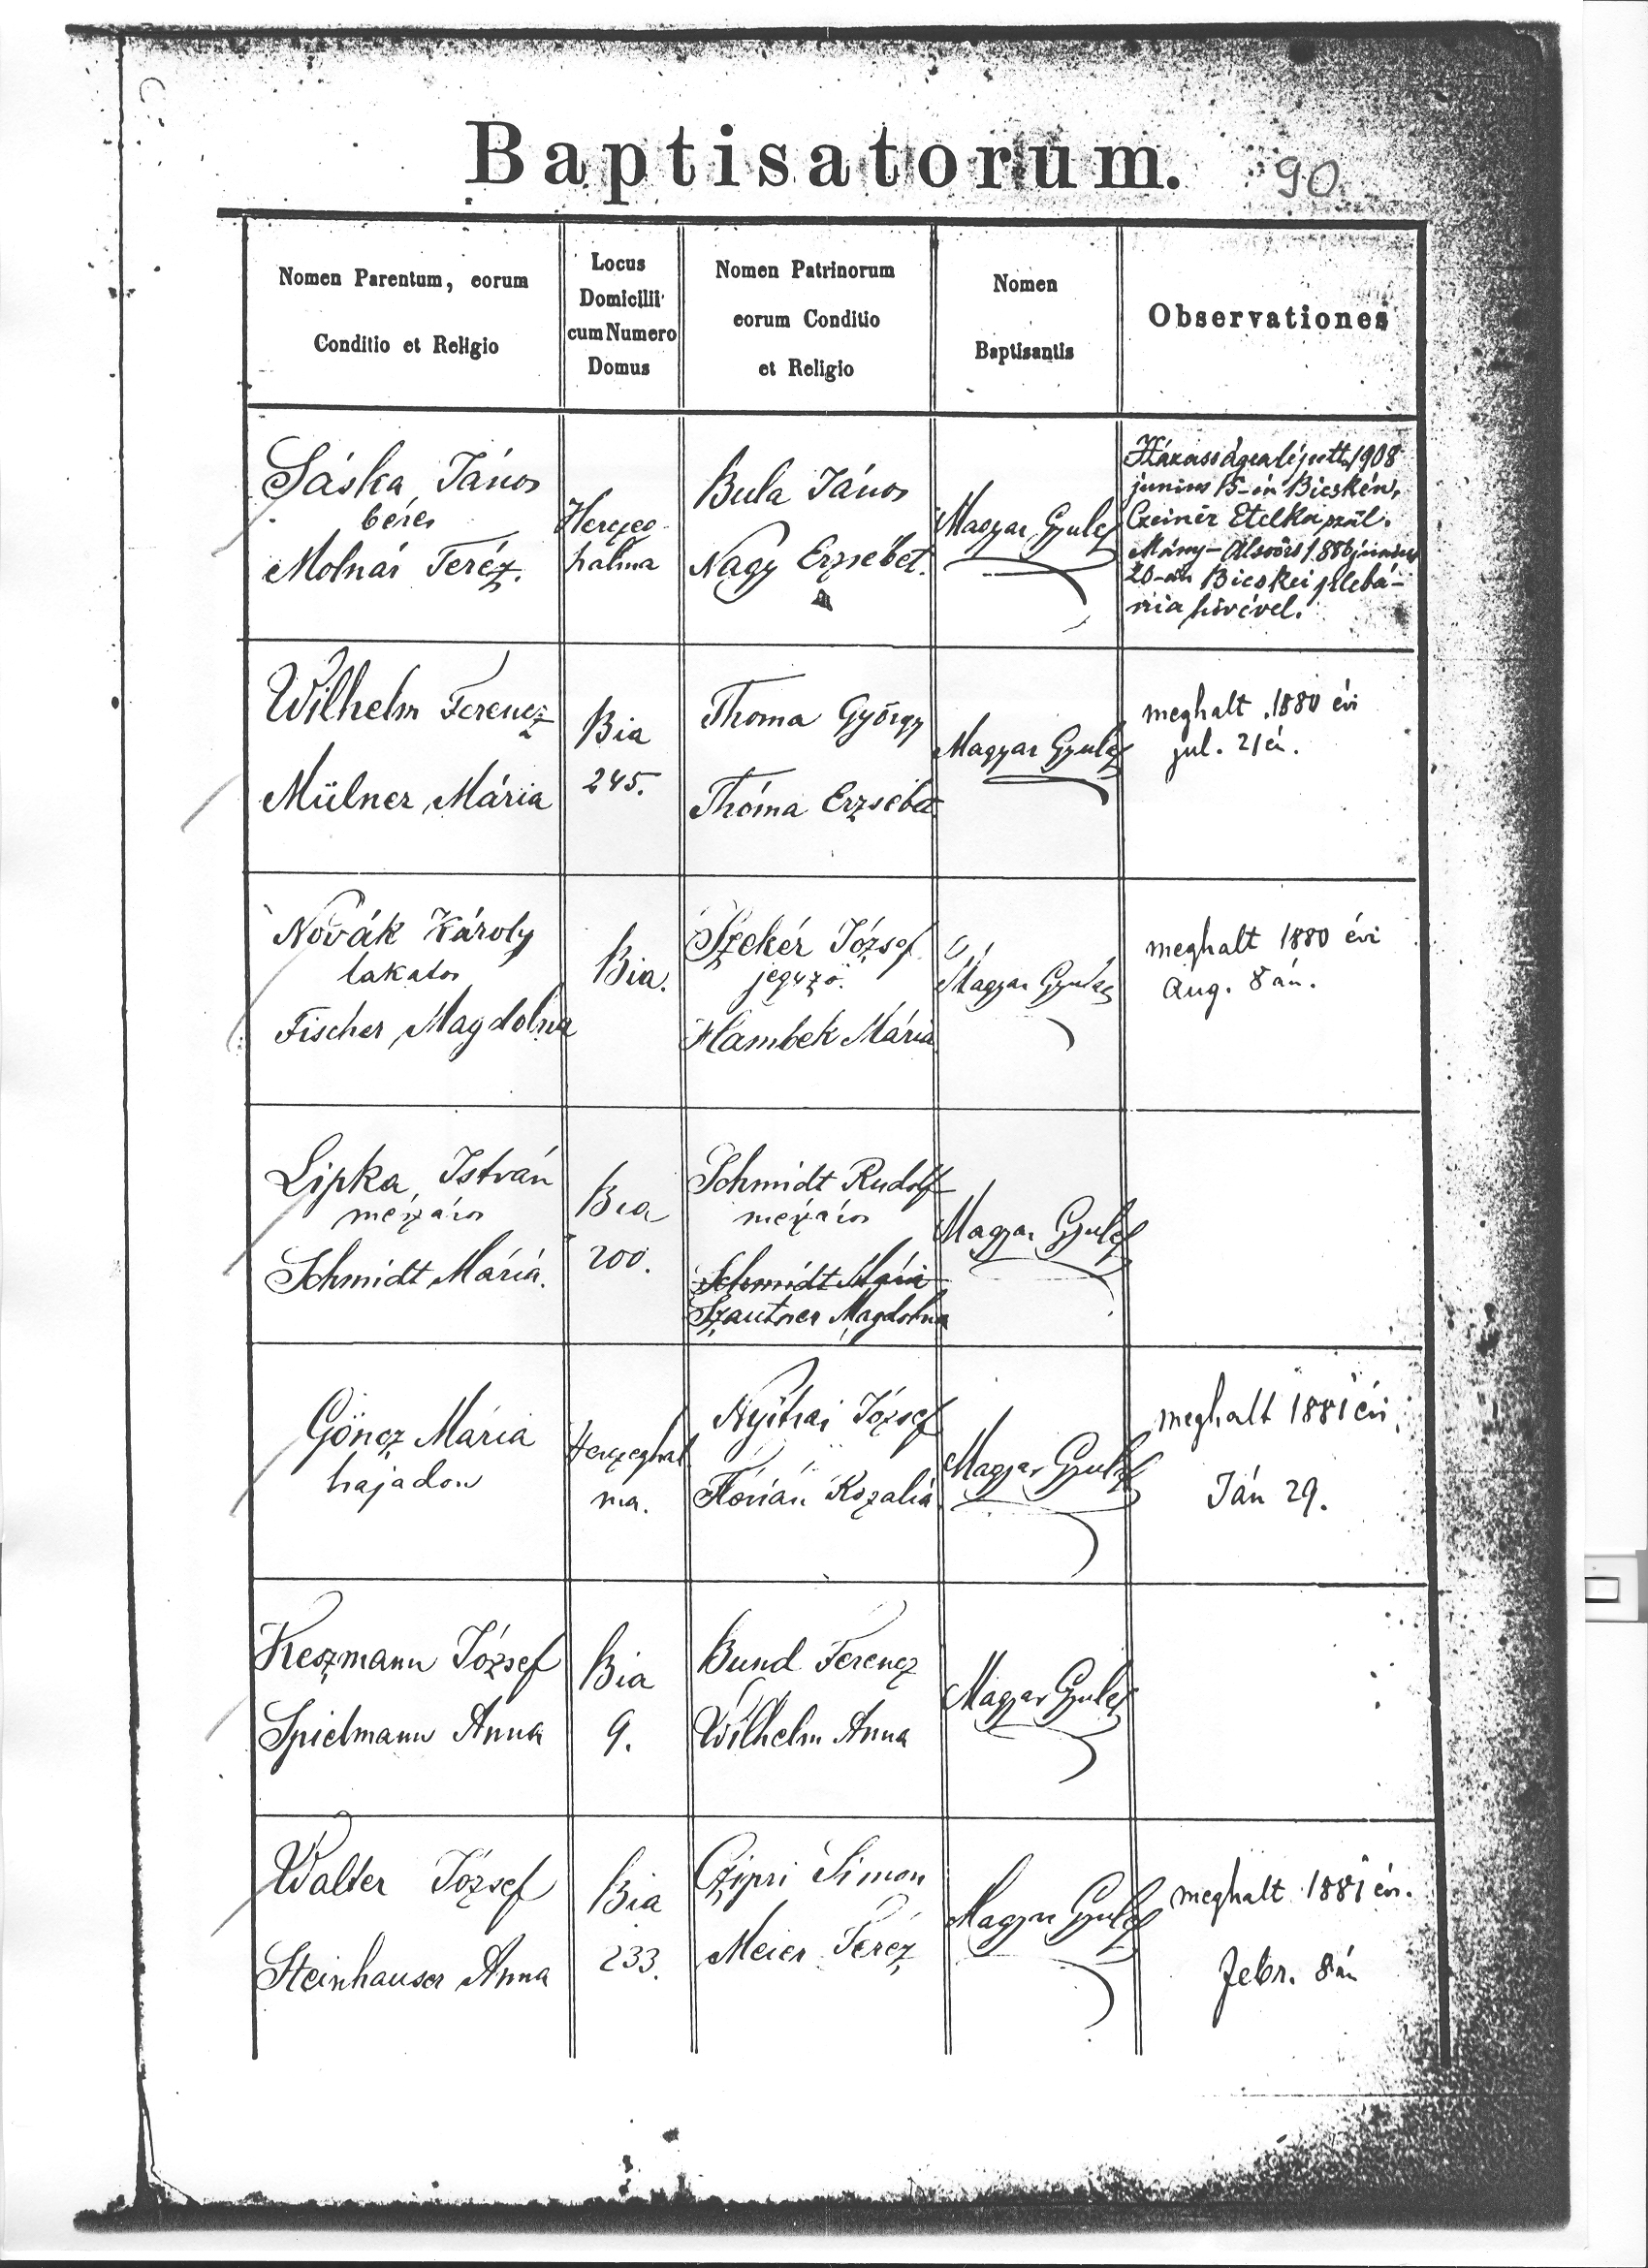 Baptisatorum.
90
Nomen Parentum, eorum
Conditio et Religio
Locus
Domicilii
cum Numero
Domus
Nomen Patrinorum
eorum Conditio
et Religio
Nomen
Baptisantis
Observationes
Sáska János
béres
Molnár Teréz.
Herczeg
halma
Bula János
Nagy Erzsébet.
Magyar Gyula
Házasságra lépett 1908
junius 15-én Bicskén,
Czeiner Etelka szül.
Mány-Alsoörs 1886 junius
20-án Bicskei plébá-
nia hívével.
Wilhelm Ferencz
Mülner Mária
Bia
245.
Thoma György
Thóma Erzsébet
Magyar Gyula
meghalt 1880 évi
jul. 21én.
Novák Károly
lakatos
Fischer Magdolna
Bia.
Szekér József
jegyző.
Hambek Mária
Magyar Gyula
meghalt 1880 évi
Aug. 8 án.
Lipka István
mészáros
Schmidt Mária.
Bia
200.
Schmidt Rudolf
mészáros
Schmidt Mária
Szautner Magdolna
Magyar Gyula
Göncz Mária
hajadon
Herczeghal
ma.
Nyitrai József
Flórián Rozalia
Magyar Gyula
meghalt 1881 évi
Ján 29.
Keszmann József
Spielmann Anna
Bia
9.
Bund Ferencz
Wilhelm Anna
Magyar Gyula
Walter József
Steinhauser Anna
Bia
233.
Czipri Simon
Meier Teréz
Magyar Gyula
meghalt 1881 évi.
febr. 8án